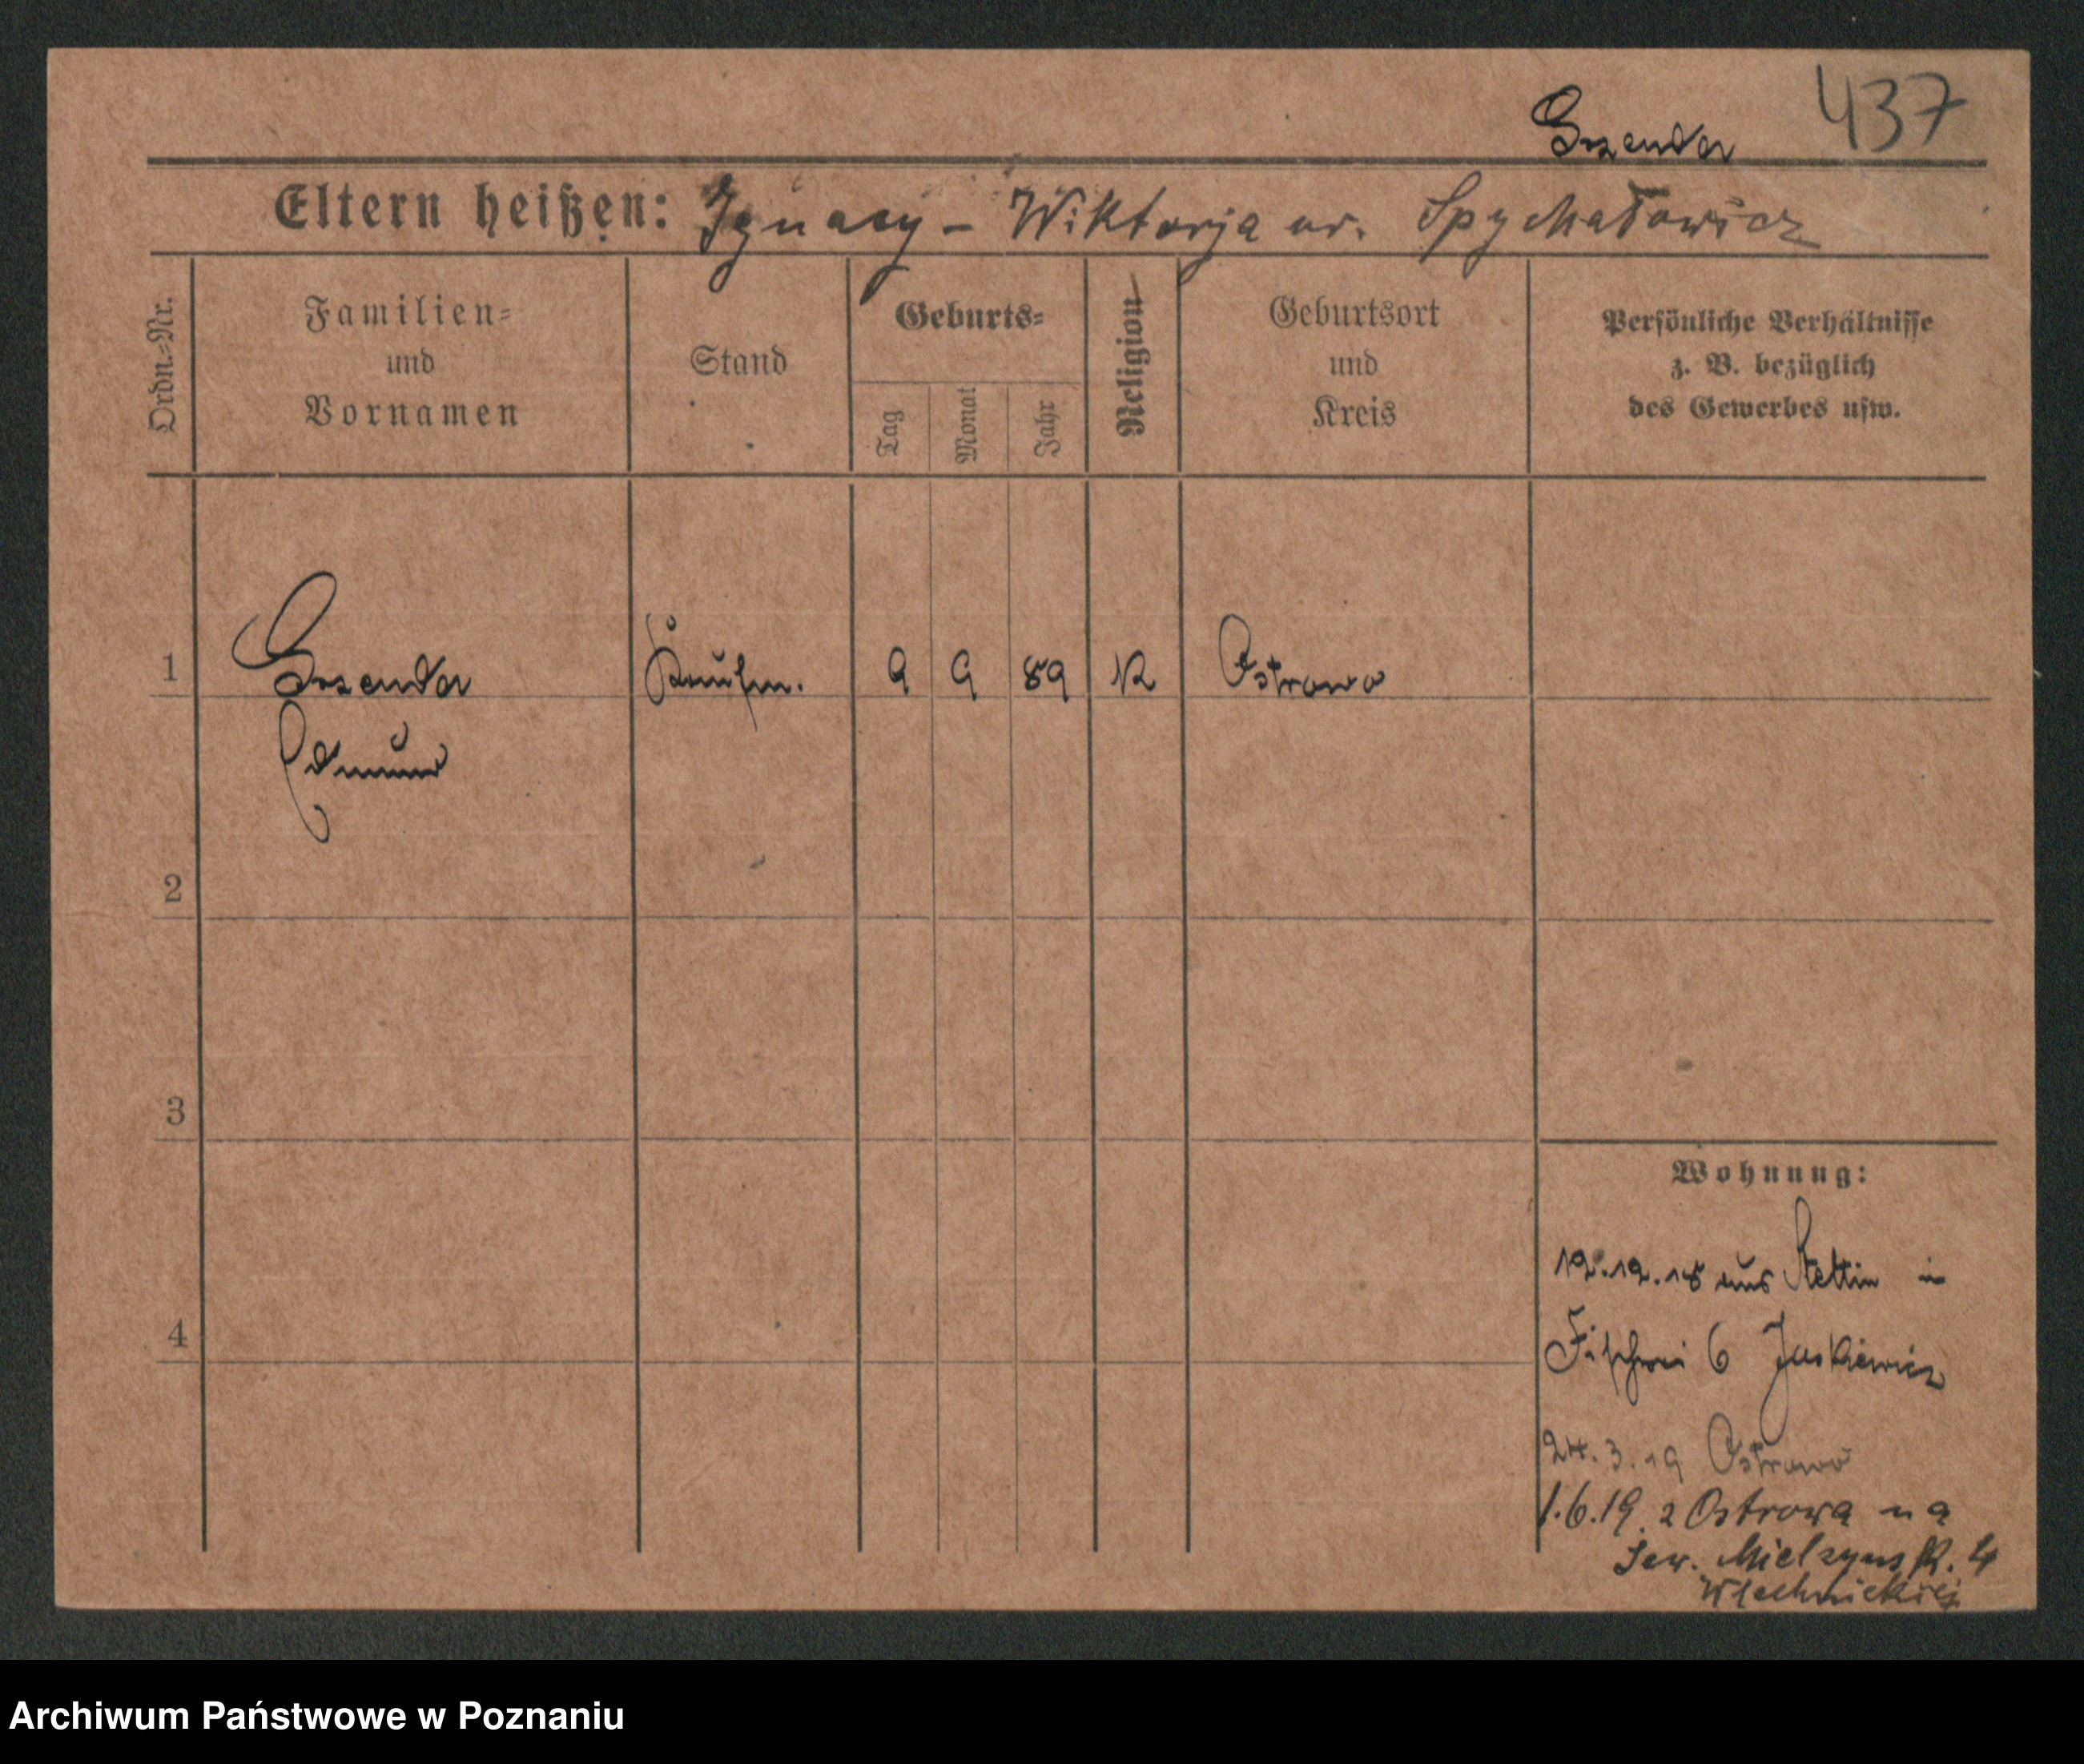 437
Szenda
Eltern heißen: Ignacy – Wiktorja ur. Spychałowicz
Ordn.=Nr.
Familien=
und
Vornamen
Stand
Geburts=
Tag
Monat
Jahr
Religion
Geburtsort
und
Kreis
Persönliche Verhältnisse
z. B. bezüglich
des Gewerbes usw.
1
Szenda Kaufm. 9 9 89 K Ostrowo
Edmund
2
3
4
Wohnung:
12.12.18 aus Stettin in
Fischerei 6 Juskiewicz
24.3.19 Ostrowo
1.6.19. z Ostrowa na
Sew. Mielzynsk. 4
Archiwum Państwowe w Poznaniu